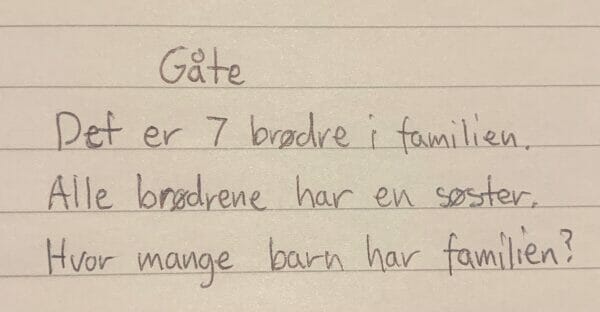 Gåte
Det er 7 brødre i familien.
Alle brødrene har en søster.
Hvor mange barn har familien?